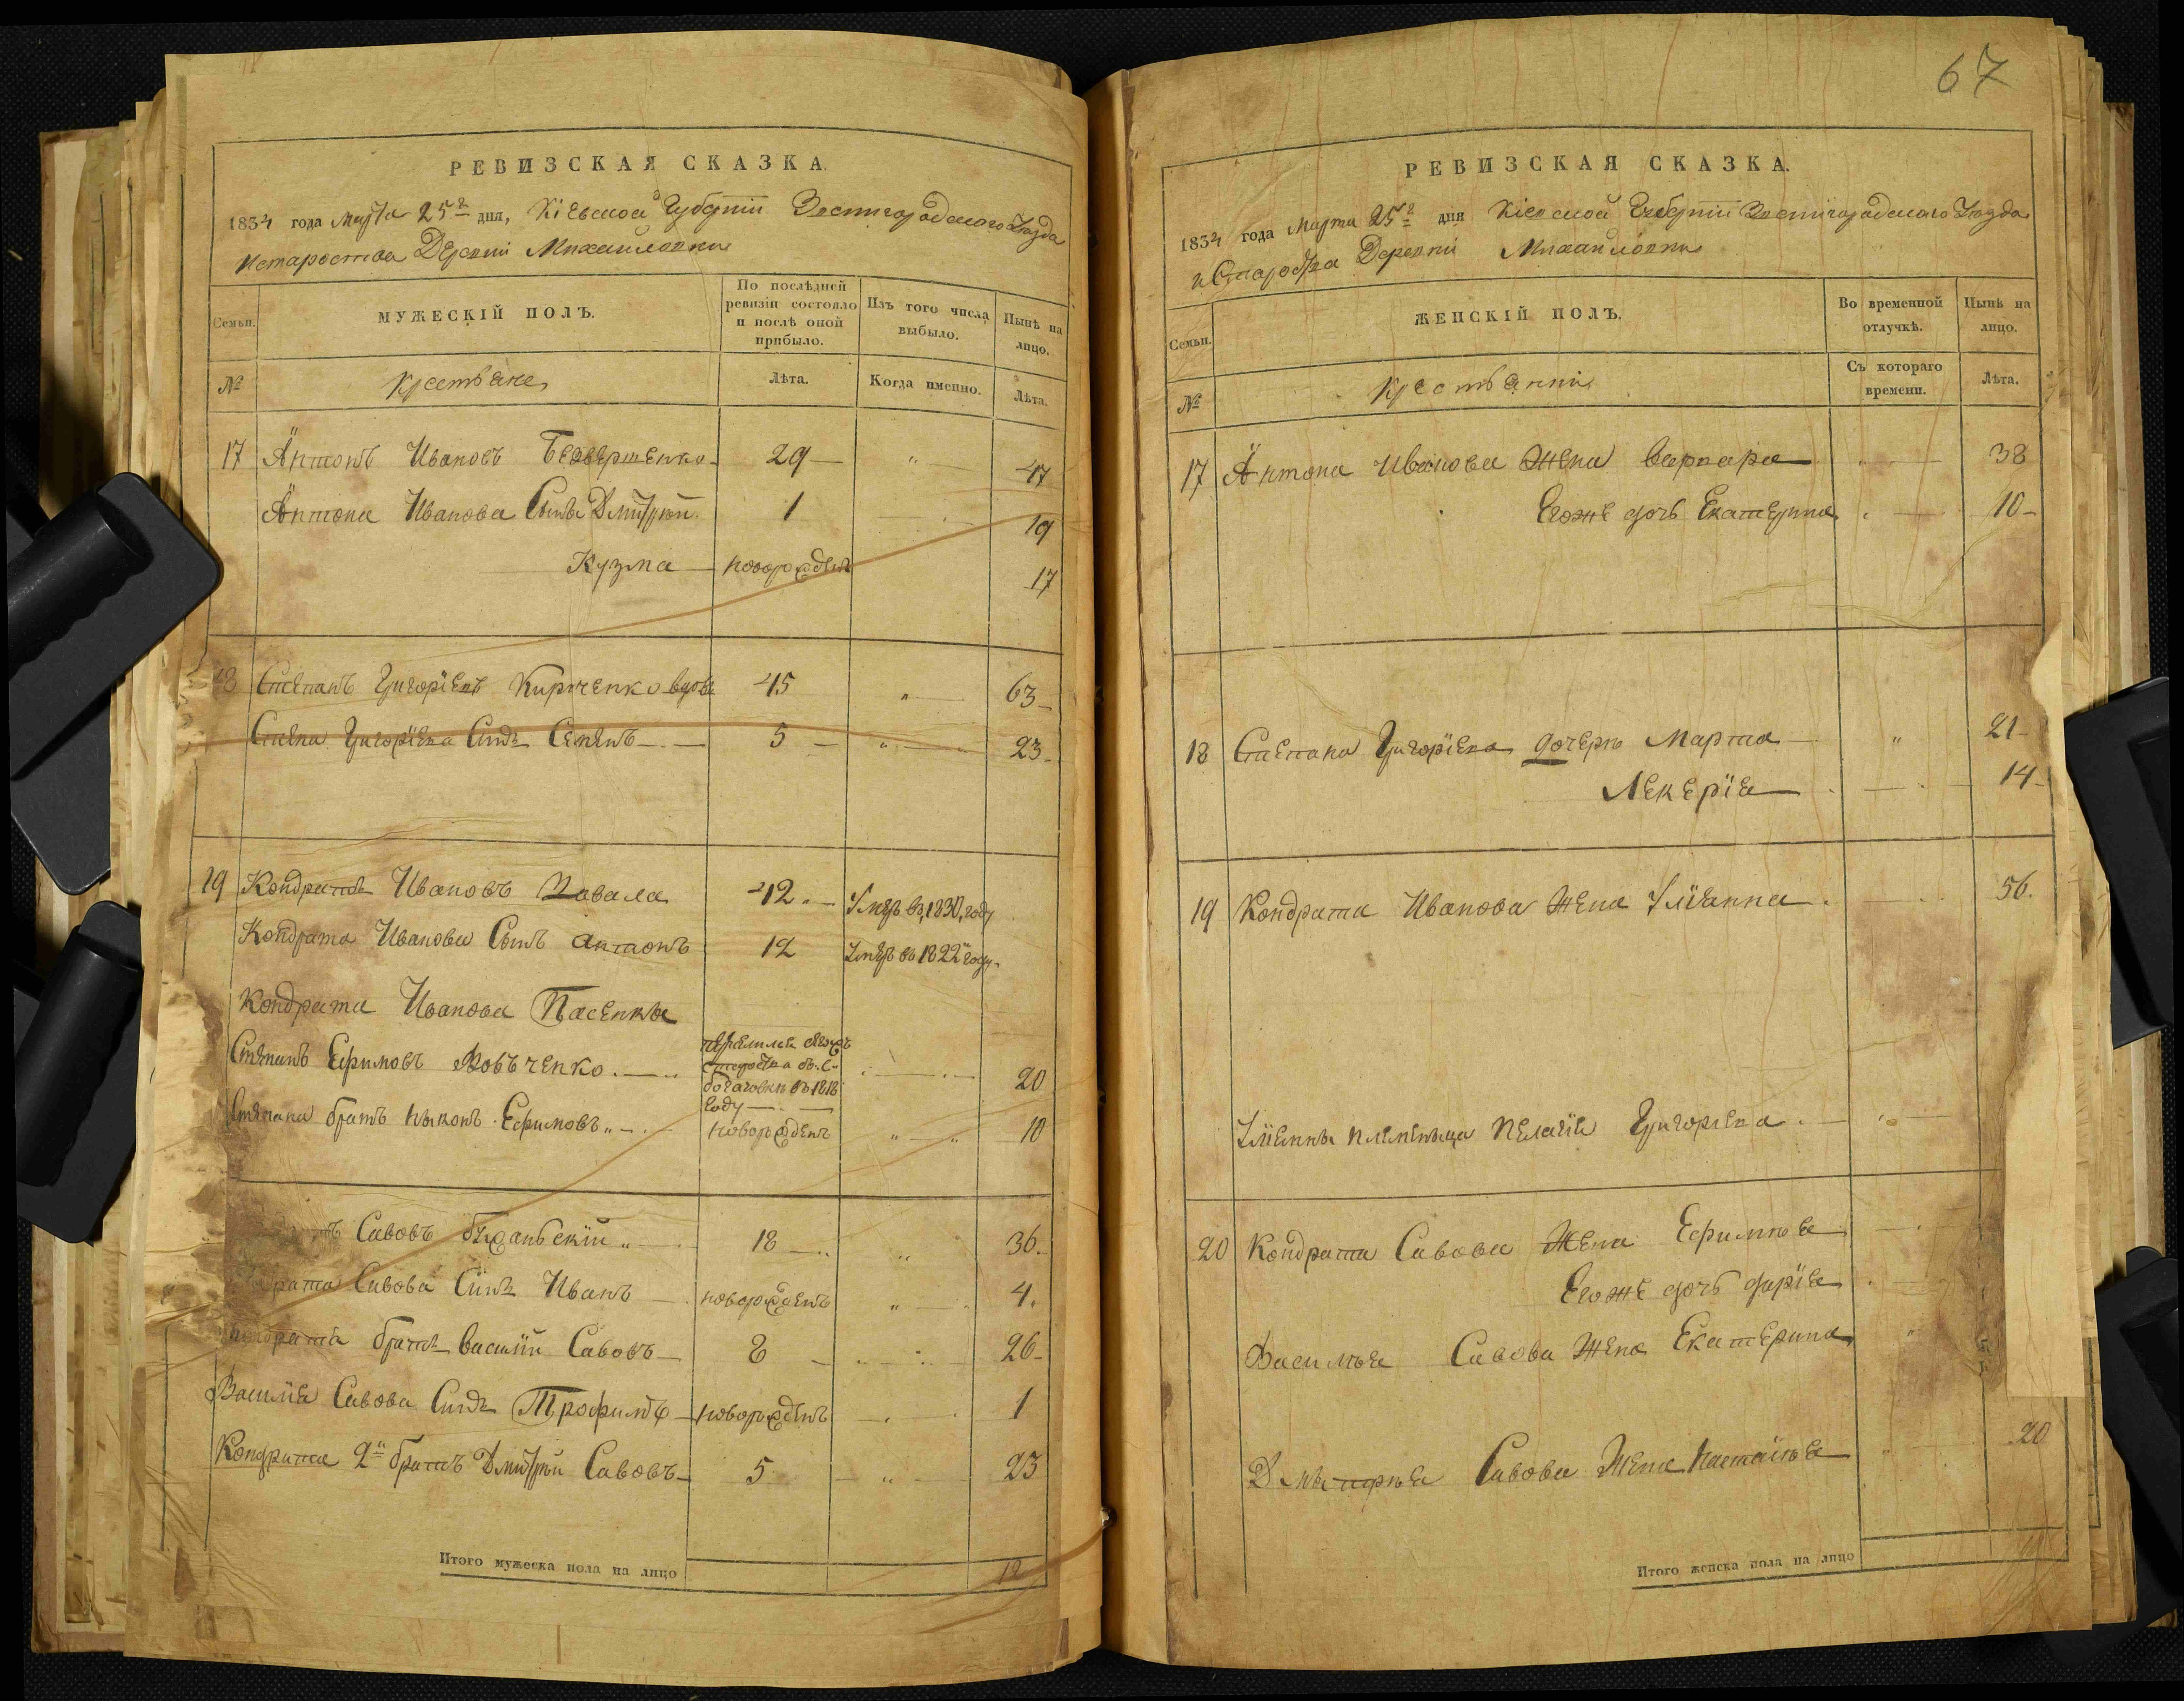 РЕВИЗСКАЯ СКАЗКА.
1834 года Марта 25го дня, Кіевской Губерніи Звенигородского Уезда
и староства Деревни Михайловки
Семьи.
МУЖЕСКІЙ ПОЛЪ.
По послѣдней ревизіи состояло и послѣ оной прибыло.
Изъ того числа выбыло.
Нынѣ на лицо.
№
Крестьяне
Лѣта.
Когда именно.
Лѣта.
17 Антонъ Ивановъ 29 47
Антона Иванова Сынъ Дмитрій 1 19
Кузма новорожденъ 17
18 Степанъ Григоріевъ Кириченко вдовъ 45 63
Степана Григоріева Сынъ Семенъ 5 23
19 Кондратъ Ивановъ 42 Умеръ въ 1830 году
Кондрата Иванова Сынъ Антонъ 12 Умеръ въ 1822м году
Кондрата Иванова Пасенки
Степанъ Ефимовъ Вовъченко староства въ 1818 году 20
Степана братъ Никонъ Ефимовъ новорожденъ 10
Савовъ 18 36
Савова Сынъ Иванъ новорожденъ 4
Кондрата братъ Василій Савовъ 8 26
Василія Савова Сынъ Трофимъ новорожденъ 1
Кондрата 2й братъ Дмитрій Савовъ 5 23
Итого мужеска пола на лицо 12
67
РЕВИЗСКАЯ СКАЗКА.
1834 года Марта 25го дня Кіевской Губерніи Звенигородского Уезда
и Староства Деревни Михайловки
Семьи.
ЖЕНСКІЙ ПОЛЪ.
Во временной отлучкѣ.
Нынѣ на лицо.
№
Крестьянки
Съ котораго времени.
Лѣта.
17 Антона Иванова Жена Варвара 38
Егоже дочь Екатерина 10
18 Степана Григоріева дочери Марта 21
Лекеріа 14
19 Кондрата Иванова Жена Уліанна 56
Уліанны племеница Пелагіа Григоріева
20 Кондрата Савова Жена Ефимиа
Егоже дочь даріа
Василья Савова Жена Екатерина
Дмитриа Савова Жена Настасиа 20
Итого женска пола на лицо